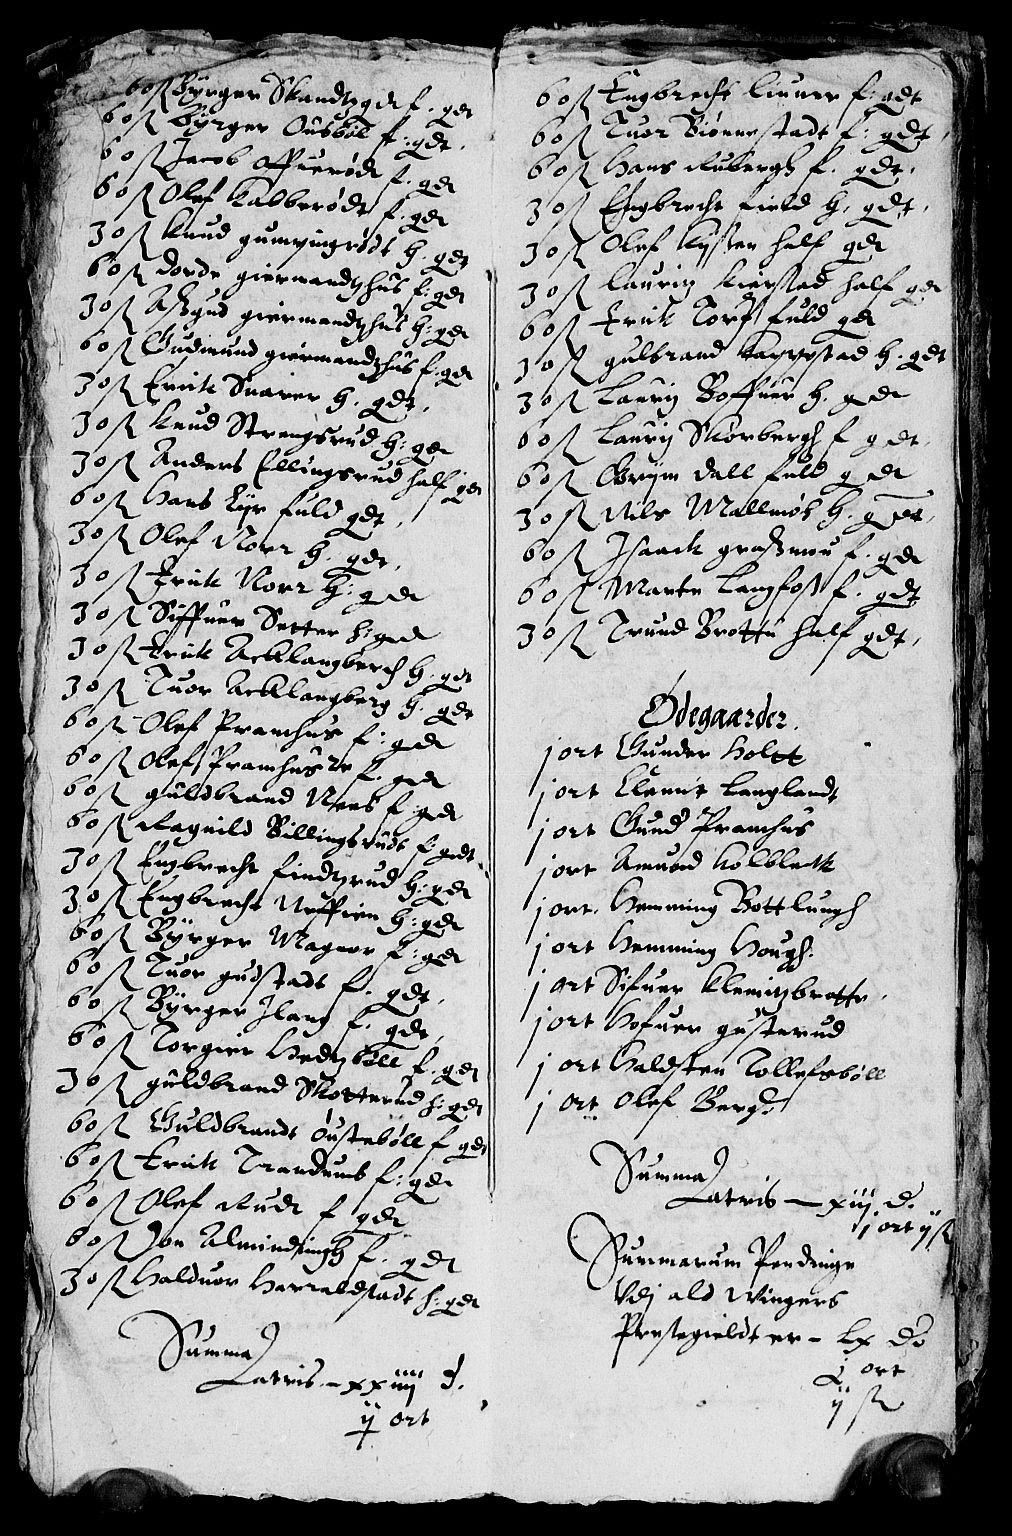 60 ß Byrger Skandtzgdr f. gdt
60 ß Byrger Ousbøl f: gdt.
60 ß Jacob Offuerødt f. gdt
60 ß Olef Kabberødt f. gdt
30 ß Knud gumpingrødt H. gdt
60 ß Dorde giermandtzhus f: gdt
30 ß Aßgud giermandtzhus H: gdt
60 ß Gudmund giermandtzhus f: gdt
30 ß Erick Snarer H. gdt.
30 ß Knud Strengsrud H: gdt
30 ß Anders Ellingsrud half gdt
60 ß Hans Lyr fuld gdt.
30 ß Olef Norr H. gdt.
30 ß Erick Norr H: gdt
30 ß Siffuer Setter h: gdt
30 ß Erick Acklangberch H. gdt
30 ß Tuor Acklangberg H. gdt
60 ß Olef Pramhus f: gdt
60 ß Olef Pramhus f. gdt
60 ß guldbrand Nees f: gdt
60 ß Ragnild Billingsrudt f gdt
30 ß Engbrecht findtzrud H: gdt
30 ß Engbrecht H: gdt
60 ß Byrger Magnor f: gdt
60 ß Tuor gudstadt f. gdt.
60 ß Byrger Jlang f. gdt.
60 ß Torgier Hedtzbøll f. gdt
30 ß guldbrand Skotterud h: gdt
60 ß Guldbrandt Oustebøll f gdt
60 ß Erick Trandumb f: gdt
60 ß Olef Rudt f gdt
60 ß Jon Almindningh f. gdt
30 ß Halduor Harraldstadt h: gdt
Summa
Latris – xxiiij d.
ij ort
60 ß Engbrecht Liuner f: gdt
60 ß Tuor Biørnestadt f: gdt.
60 ß Hans Rubergh f. gdt.
30 ß Engbrecht field H. gdt.
30 ß Olef Kysten half gdt
30 ß Lauritz Kierstad half gdt
60 ß Erick Torp fuld gdt
30 ß gulbrand Kappstad H. gdt
30 ß Lauritz Boffuer H. gdt
60 ß Lauritz Skørbergh f gdt.
60 ß Grijm dall fuld gdt
30 ß Nils Mallmøb H. gdt.
60 ß Jsaack graßmou f. gdt
60 ß Marte Langfoß f. gdt
30 ß Trund Brotte half gdt.
Ødegaarder.
j ort Gunder Holtt
j ort Clemit Langlandt
j ort Gund Pramhus
j ort Amund Kolbleck
j ort. Hemming Bottlungh
j ort Hemming Hough.
j ort Sifuer Klemitzbrotte.
j ort Hofuer gusterud
j ort Haldsten Tollefsbøll
j ort Olef Berg.
Summa
Latris – xiij d.
j ort ij ß
Summarum Pendinge
Vdj ald Wingers
Prestegieldt er – lx d.
j ort
ij ß